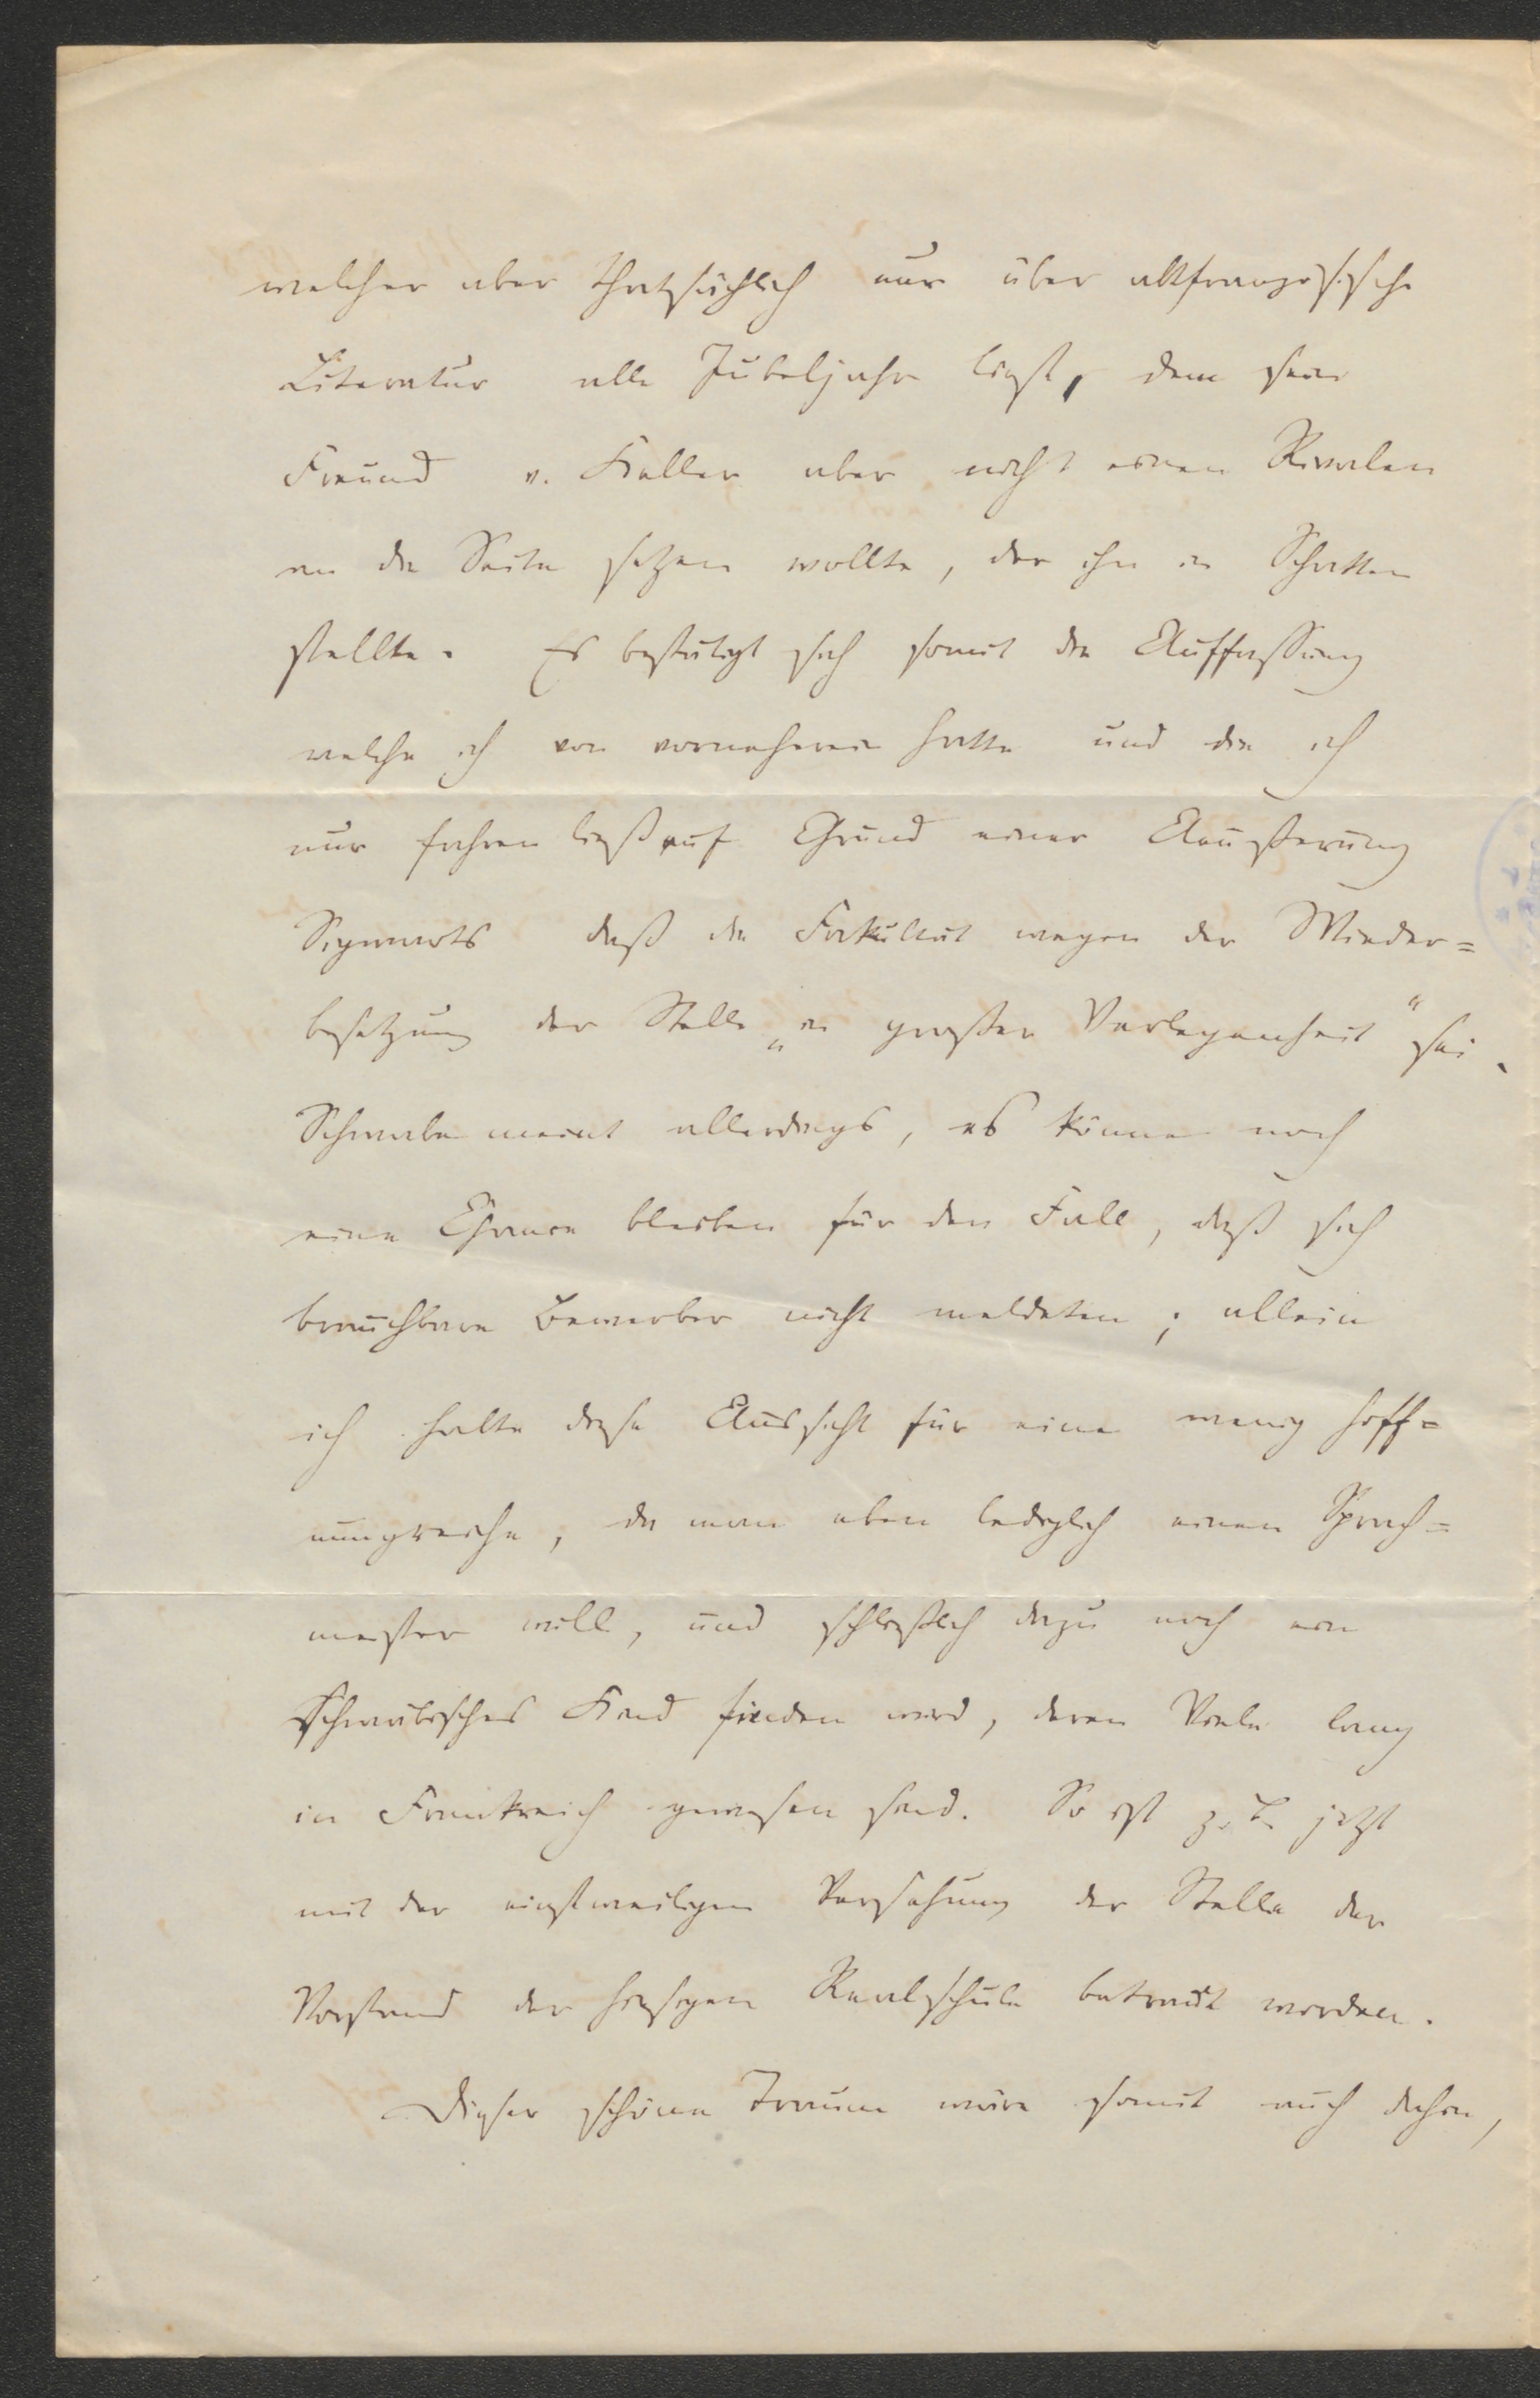 welcher aber thatsächlich nur über altfranzösische
Literatur alle Jubeljahr liest, dem sein
Freund v. Keller aber nicht einen Rivalen
an die Seite setzen wollte, der ihn in Schatten
stellte. Es bestätigt sich somit die Auffassung
welche ich von vorneherein hatte und die ich
nur fahren ließ auf Grund einer Aeußerung
Sigwarts daß die Fakultät wegen der Wieder=
besetzung der Stelle „in großer Verlegenheit“ sei.
Schwabe meint allerdings, es könne noch
eine Chance bleiben für den Fall, daß sich
brauchbare Bewerber nicht meldeten; allein
ich halte diese Aussicht für eine wenig hoff=
nungreiche, da man eben lediglich einen Sprach=
meister will, und schließlich dazu noch ein
schwäbisches Kind finden wird, deren Viele lang
in Frankreich gewesen sind. So ist z. B. jetzt
mit der einstweiligen Versehung der Stelle der
Vorstand der hiesigen Realschule betraut worden.
Dieser schöne Traum wäre somit auch dahin,